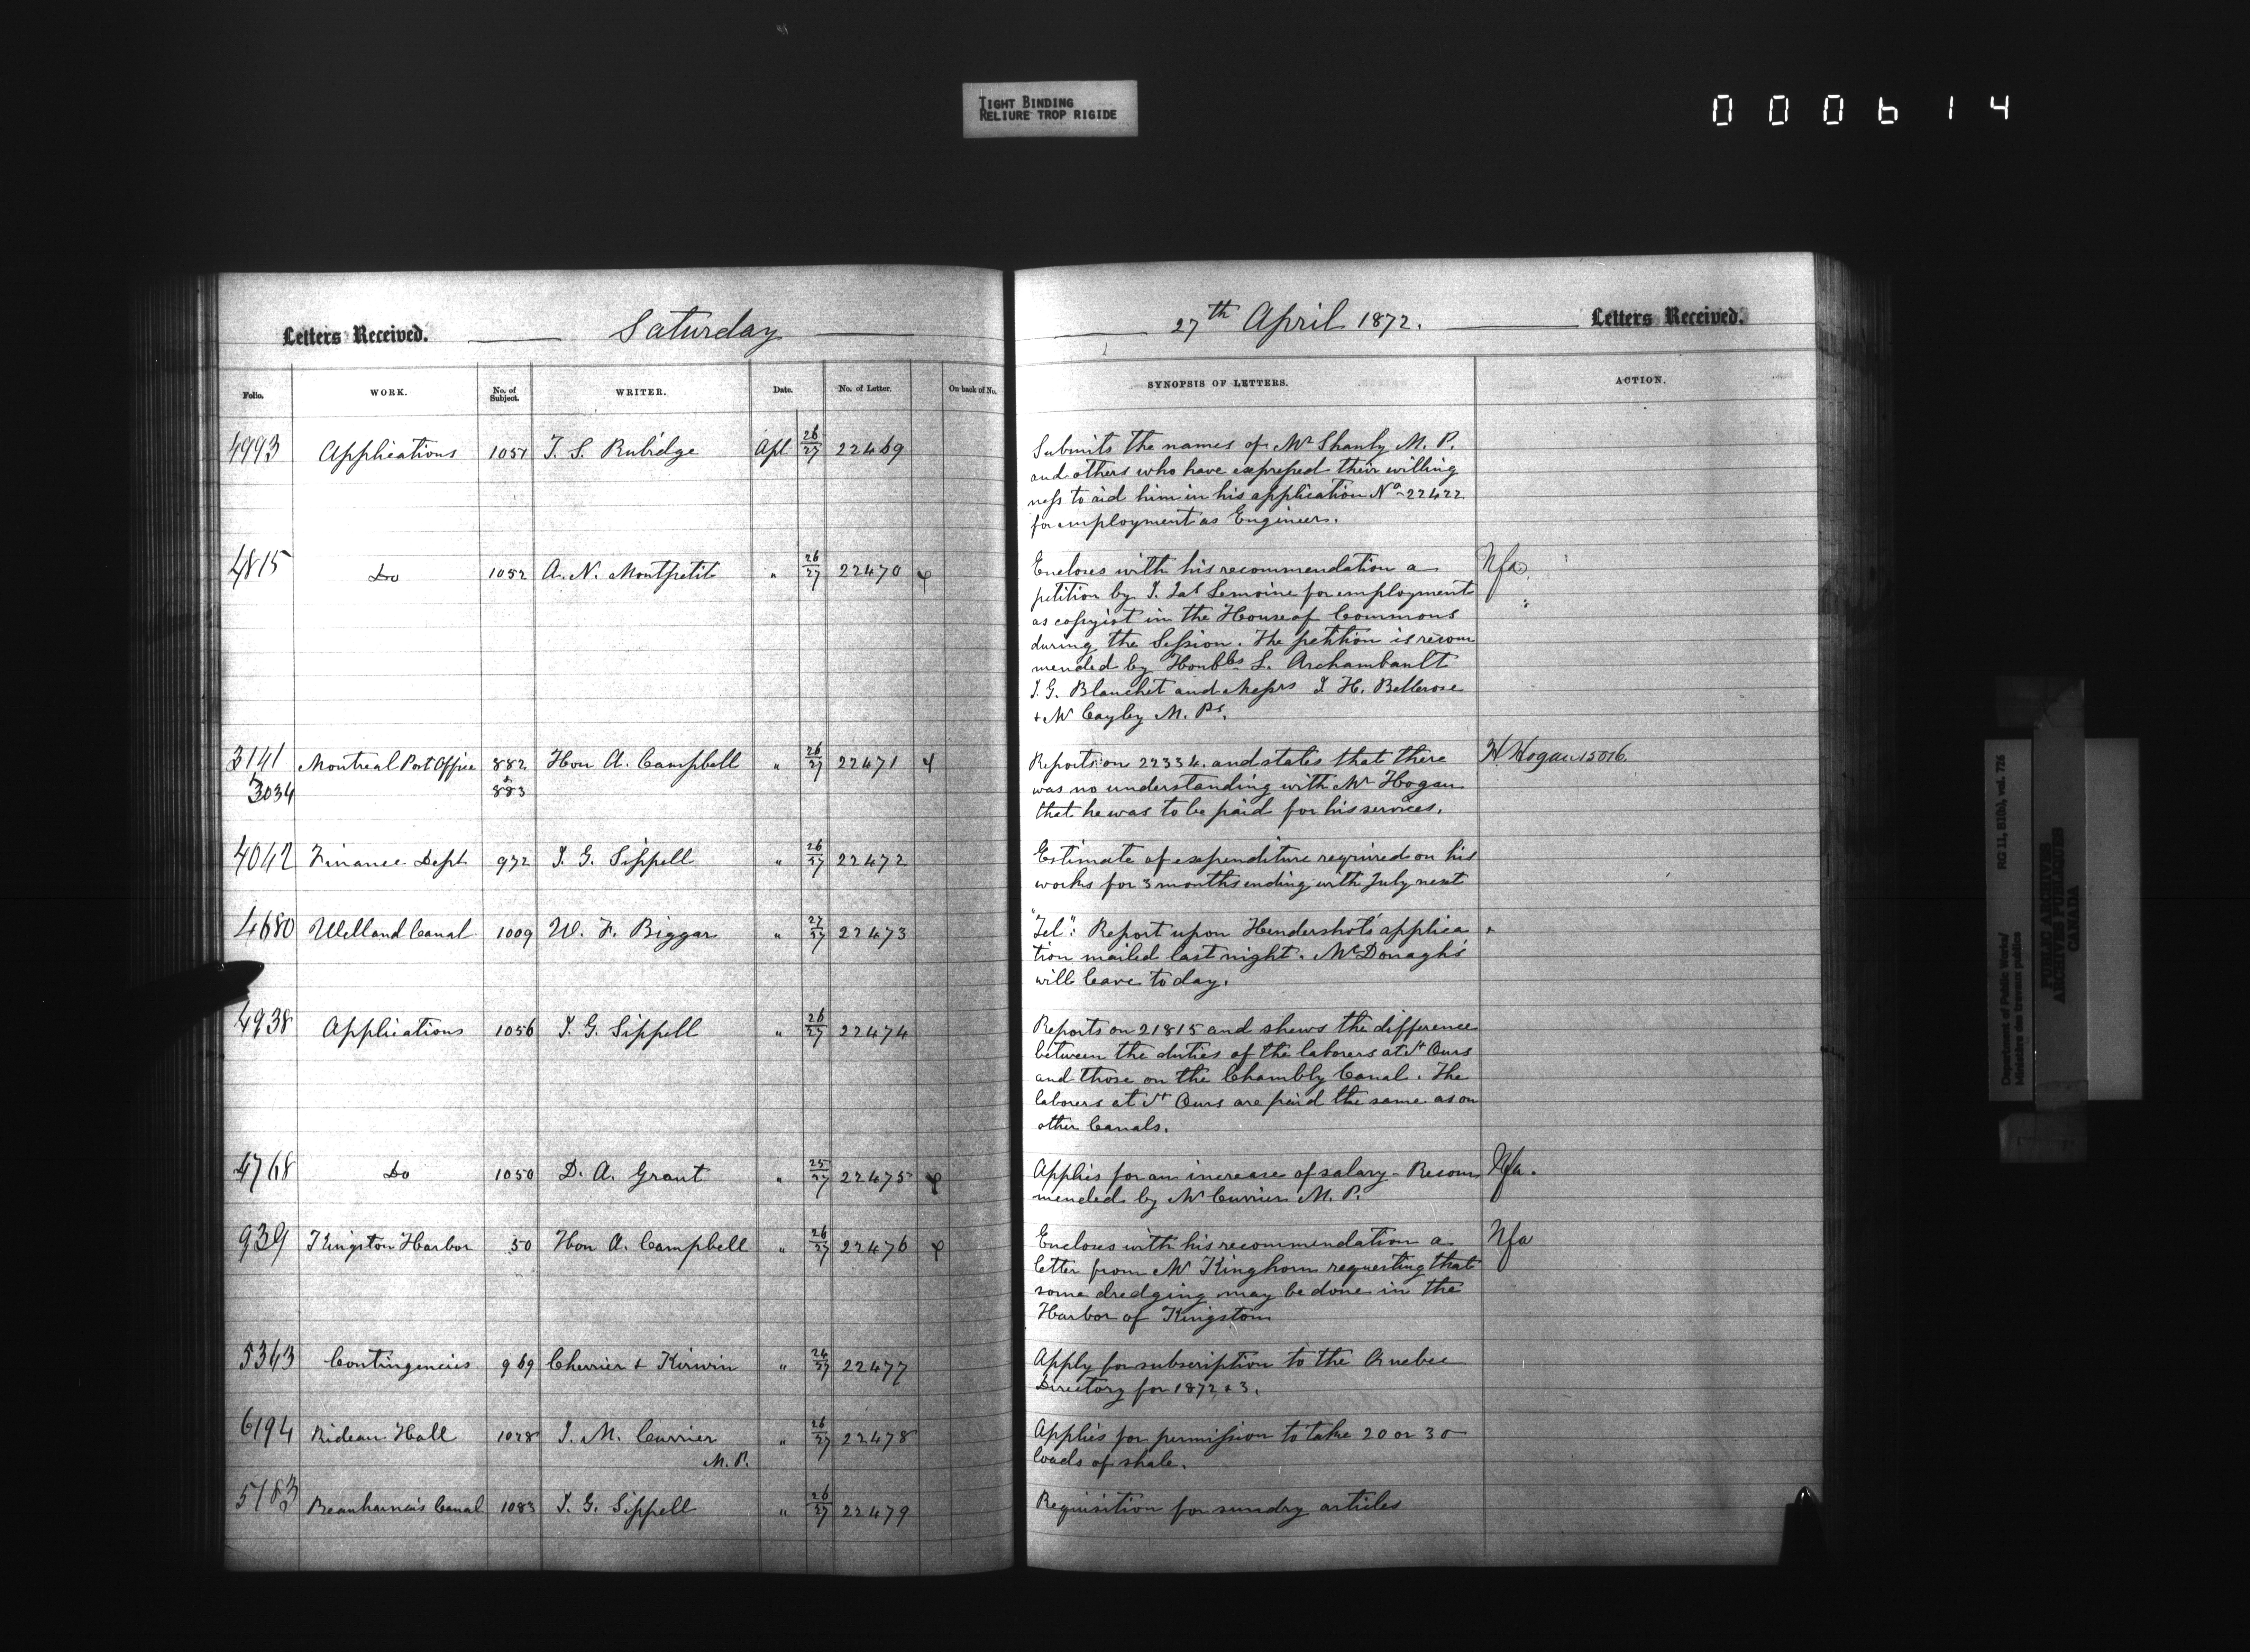 TIGHT BINDING
RELIURE TROP RIGIDE
000614
Letters Received. Saturday
Folio. WORK. No. of Subject. WRITER. Date. No. of Letter. On back of No.
4993 Applications 1051 T. S. Rubidge Apl 26/27 22469
4815 Do 1052 A. N. Montpetit " 26/27 22470
3141 Montreal Post Office 882 Hon A. Campbell " 26/27 22471
& &
3034 883
4042 Finance Dept 972 J. G. Sippell " 26/27 22472
4680 Welland Canal 1009 W. F. Biggar " 27/27 22473
4938 Applications 1056 J. G. Sippell " 26/27 22474
4768 Do 1050 D. A. Grant " 25/27 22475
939 Kingston Harbor 50 Hon A. Campbell " 26/27 22476
5363 Contingencies 969 Cherrier & Kirwin " 24/27 22477
6194 Rideau Hall 1028 J. M. Currier " 26/27 22478
M. P.
5183 Beauharnois Canal 1083 J. G. Sippell " 26/27 22479
27th April 1872. Letters Received.
SYNOPSIS OF LETTERS. ACTION.
Submits the names of Mr Shanly M. P.
and others who have expressed their willing
ness to aid him in his application No 22422
for employment as Engineer.
Encloses with his recommendation a Nfa
petition by J. Jas Lemoine for employment
as copyist in the House of Commons
during the Session. The petition is recom
mended by Honbles L. Archambault
J. G. Blanchet and Messrs J. H. Bellerose
+ Mr Cayley M. Ps.
Reports on 22334. and states that there H. Hogan 15016.
was no understanding with Mr Hogan
that he was to be paid for his services.
Estimate of expenditure required on his
works for 3 months ending with July next
"Tel": Report upon Hendershot's applica
tion mailed last night. McDonagh's
will leave today.
Reports on 21815 and shews the difference
between the duties of the laborers at St Ours
and those on the Chambly Canal. The
laborers at St Ours are paid the same as on
other Canals.
Applies for an increase of salary - Recom Nfa.
mended by Mr Currier M. P.
Encloses with his recommendation a Nfa
letter from Mr Kinghorn requesting that
some dredging may be done in the
Harbor of Kingston
Apply for subscription to the Quebec
Directory for 1872 & 3.
Applies for permission to take 20 or 30
loads of shale.
Requisition for sundry articles
Department of Public Works/ RG 11, B1(b), vol. 776
Ministère des travaux publics
PUBLIC ARCHIVES
ARCHIVES PUBLIQUES
CANADA